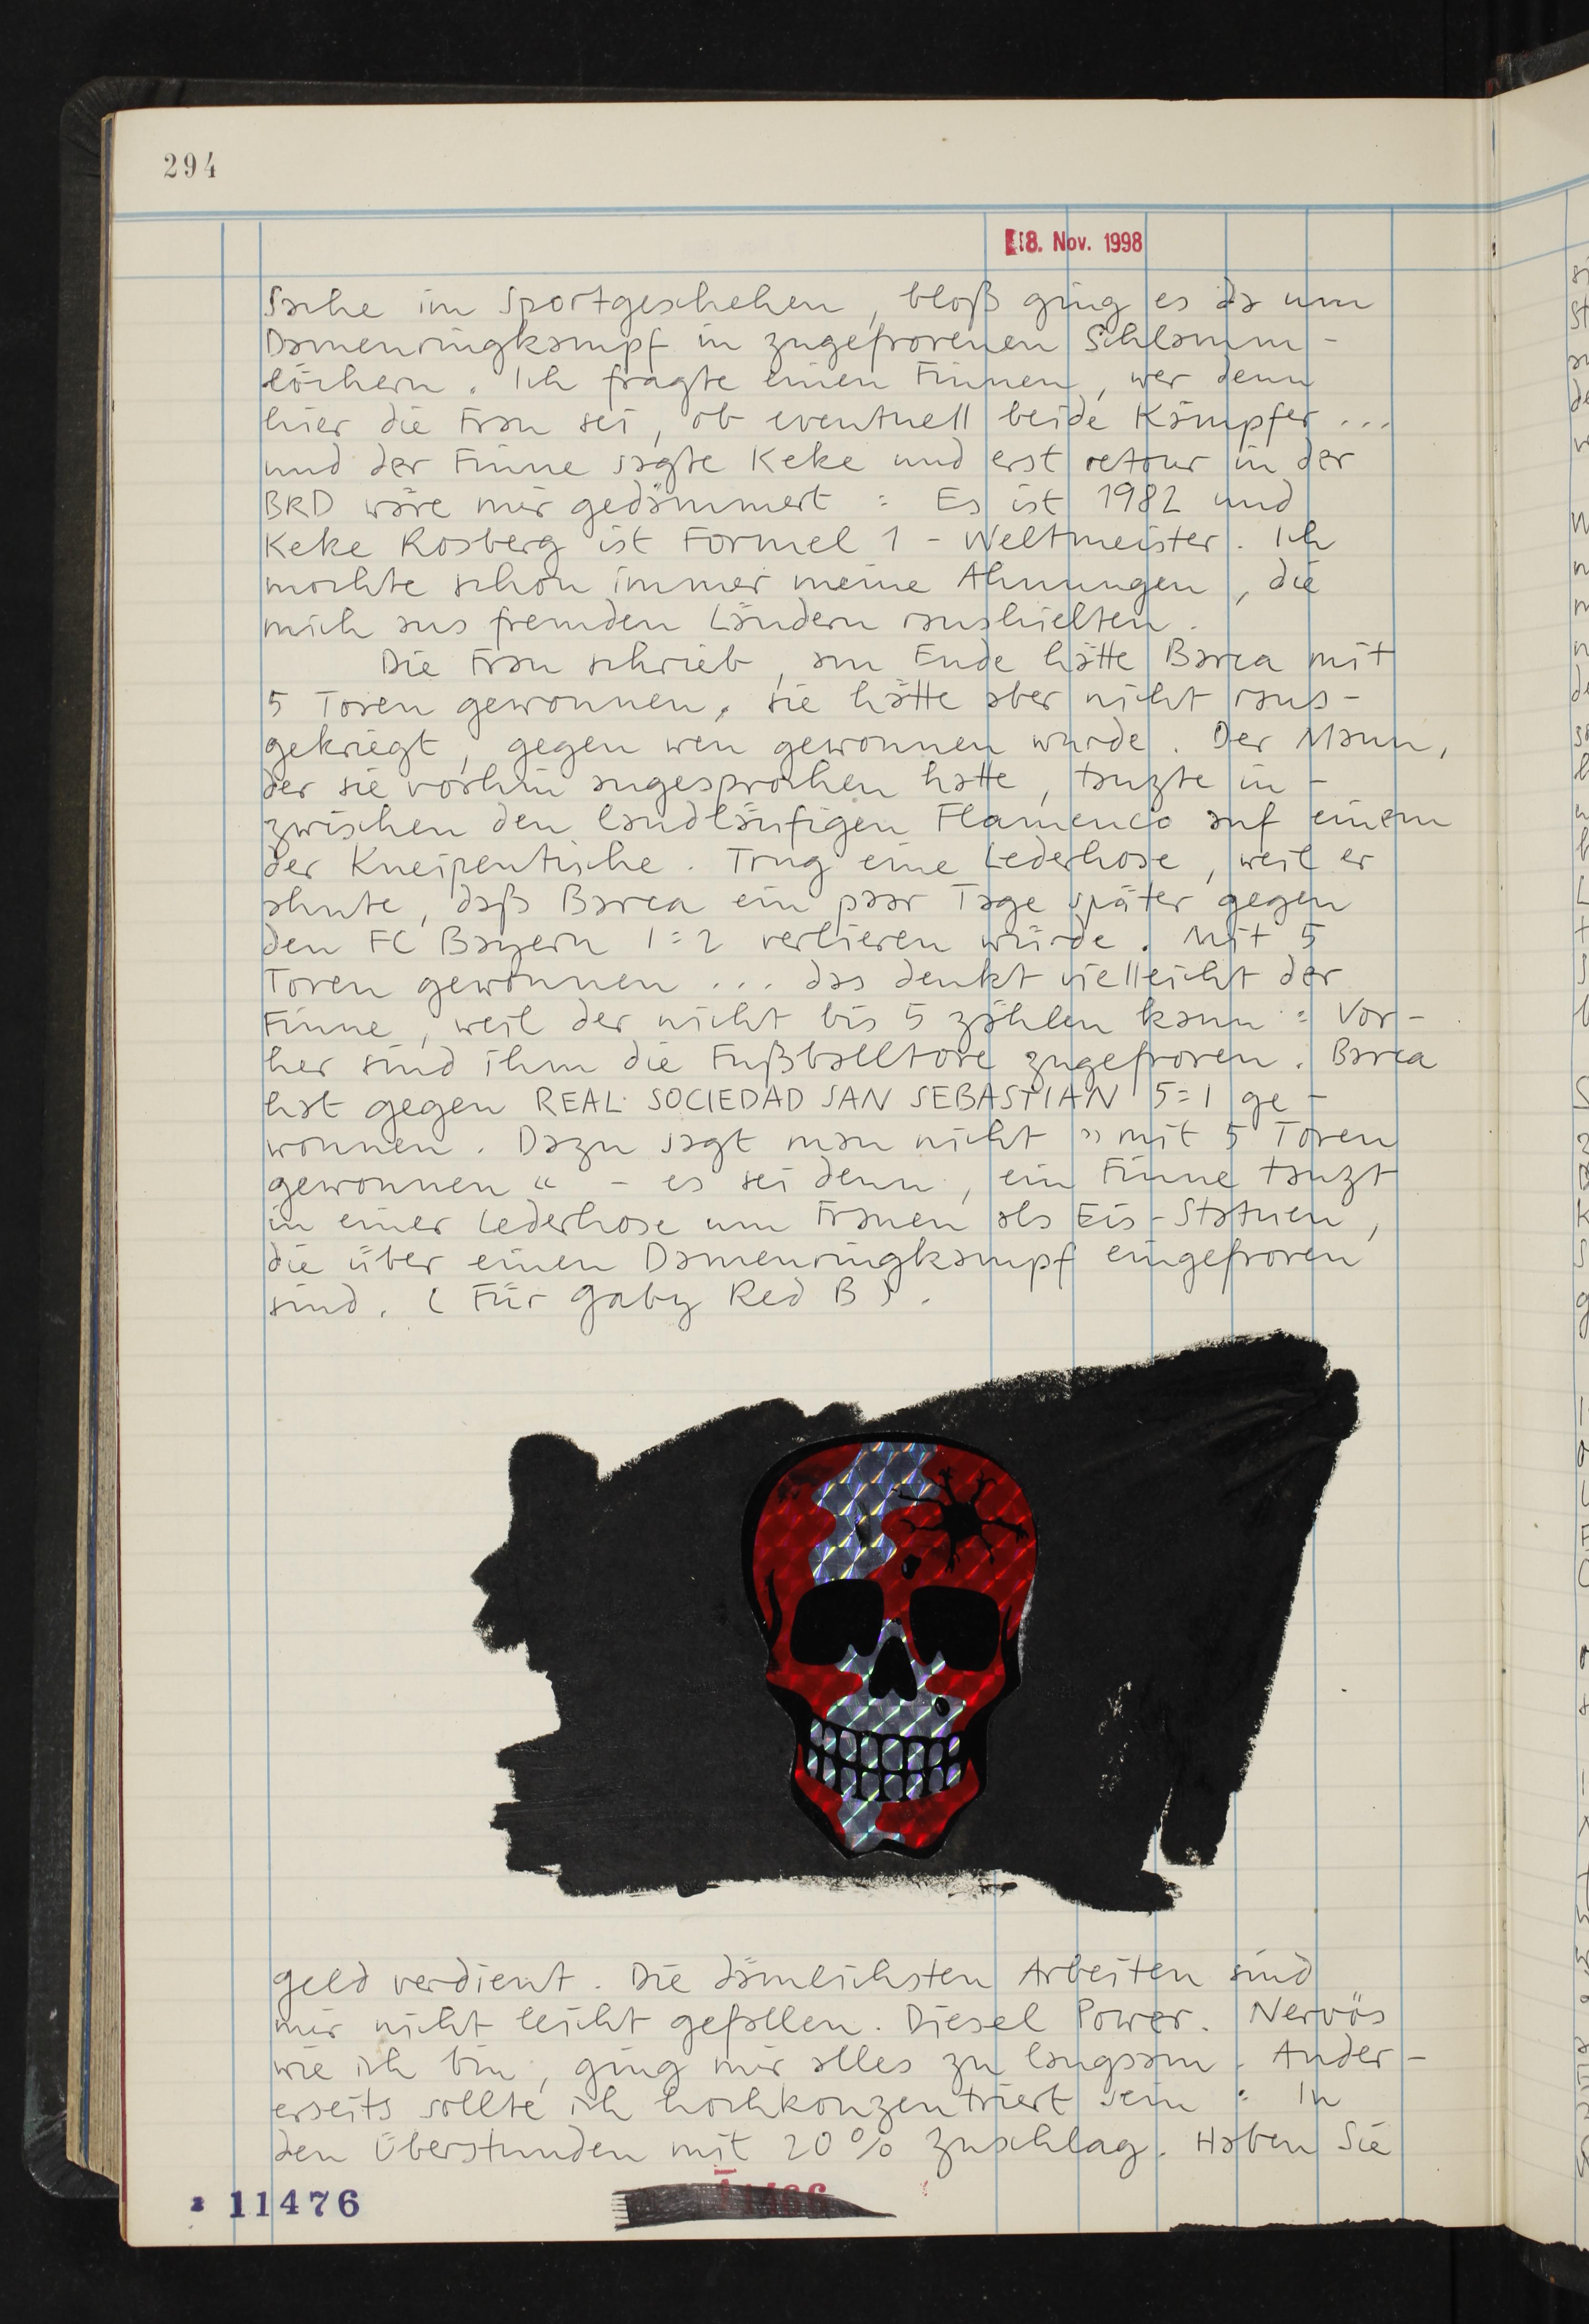 294
18. Nov. 1998
Sache im Sportgeschehen, bloß ging es da um
Damenringkampf in zugefrorenen Schlamm-
löchern. Ich fragte einen Finnen, wer denn
hier die Frau sei, ob eventuell beide Kämpfer ...
und der Finne sagte Keke und erst retour in der
BRD wäre mir gedämmert : Es ist 1982 und
Keke Rosberg ist Formel 1 - Weltmeister. Ich
mochte schon immer meine Ahnungen, die
mich aus fremden Ländern raushielten.
Die Frau schrieb, am Ende hätte Barca mit
5 Toren gewonnen, sie hätte aber nicht raus-
gekriegt, gegen wen gewonnen wurde. Der Mann,
der sie vorhin angesprochen hatte, tanzte in-
zwischen den landläufigen Flamenco auf einem
der Kneipentische. Trug eine Lederhose, weil er
ahnte, daß Barca ein paar Tage später gegen
den FC Bayern 1:2 verlieren würde. Mit 5
Toren gewonnen ... das denkt vielleicht der
Finne, weil der nicht bis 5 zählen kann : Vor-
her sind ihm die Fußballtore zugefroren. Barca
hat gegen REAL SOCIEDAD SAN SEBASTIAN 5:1 ge-
wonnen. Dazu sagt man nicht » mit 5 Toren
gewonnen “ - es sei denn, ein Finne tanzt
in einer Lederhose um Frauen als Eis-Statuen,
die über einen Damenringkampf eingefroren
sind. ( Für Gaby Red B ).
geld verdient. Die dämlichsten Arbeiten sind
mir nicht leicht gefallen. Diesel Power. Nervös
wie ich bin, ging mir alles zu langsam. Ander-
erseits sollte ich hochkonzentriert sein : In
den Überstunden mit 20% Zuschlag. Haben Sie
11476